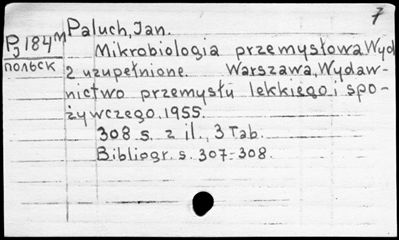 7
Paluch, Jan.
Pg 184 м
польск
Mikrobiologia przemysłowa. Wyd.
2 uzupełnione. Warszawa, Wydaw-
nictwo przemysłu lekkiego i spo-
żywczego. 1955.
308 s. z il., 3 Tab.
Bibliogr. s. 307-308.